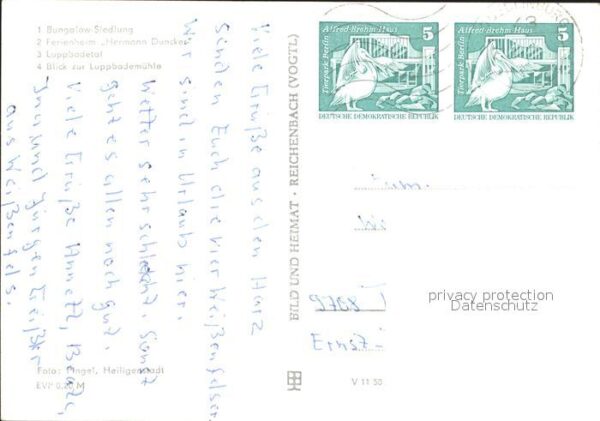 1 Bungalow-Siedlung
2 Ferienheim „Hermann Duncker
3 Luppbodetal
4 Blick zur Luppbodemühle
Viele Grüße aus den Harz
senden Euch die vier Weißenfelser.
Wir sind in Urlaub hier.
Wetter sehr schlecht. Sonst
geht es allen noch gut.
Viele Grüße Annett, Beate,
und Jürgen
aus Weißenfels.
Foto: Tingel, Heiligenstadt
EVP 0,20 M
BILD UND HEIMAT · REICHENBACH (VOGTL)
V 11 50
Alfred-Brehm-Haus
5
Tierpark Berlin
DEUTSCHE DEMOKRATISCHE REPUBLIK
Alfred-Brehm-Haus
5
Tierpark Berlin
DEUTSCHE DEMOKRATISCHE REPUBLIK
Fam.
9708 T
Ernst-
privacy protection
Datenschutz